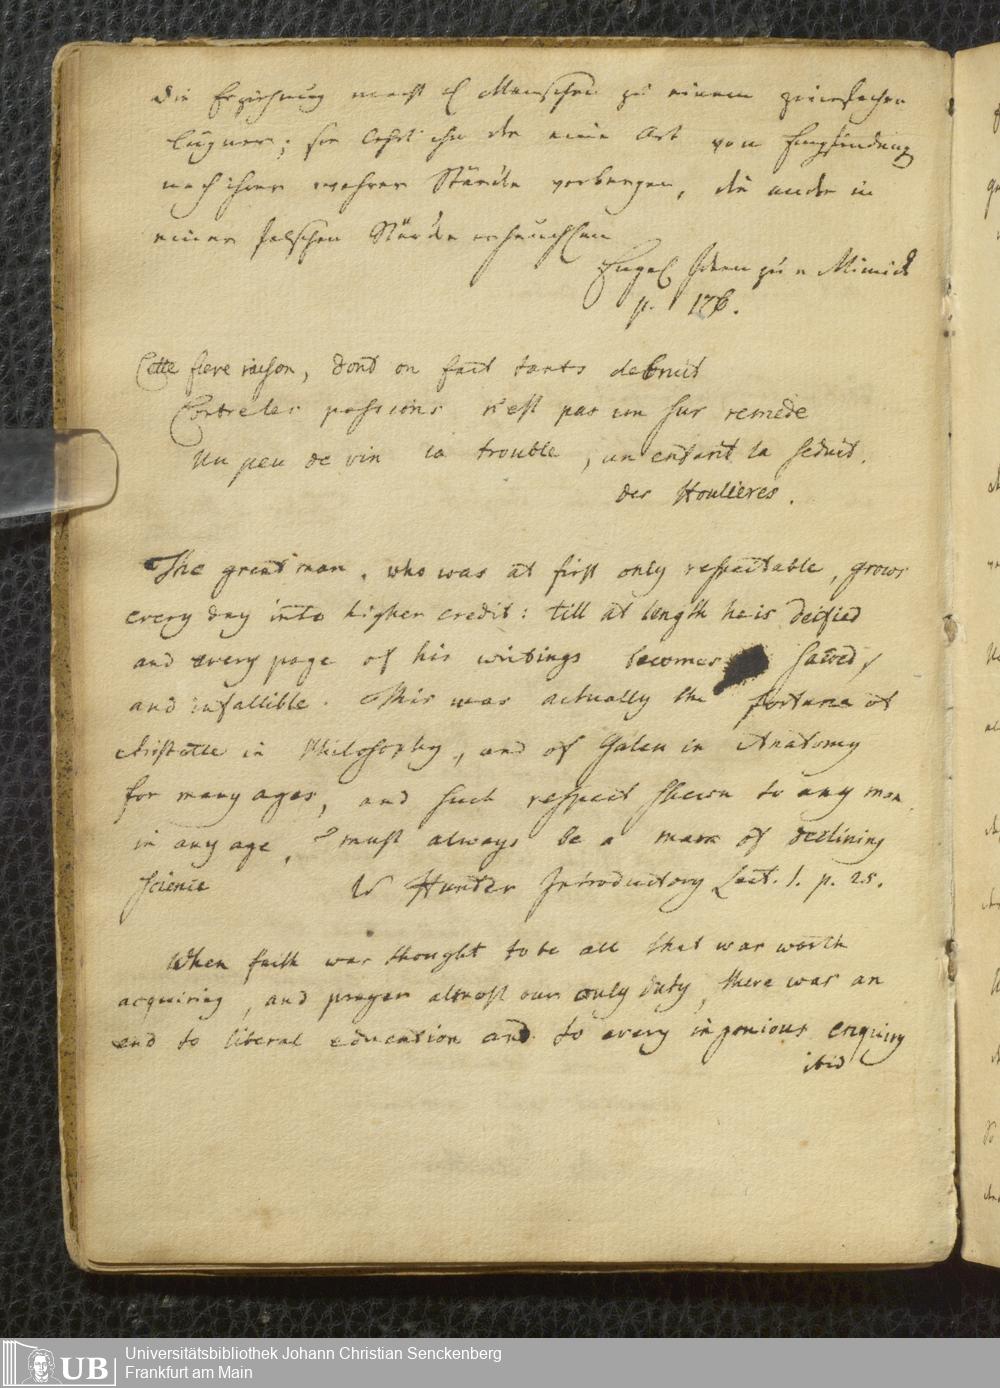 Die Erziehung macht d Menschen zu einem zwiefachen
Lügner; sie lehrt ihn die eine Art von Empfindung
nach ihrer wahren Stärke verbergen, die andre in
einer falschen Stärke erheuchlen
Engel Ideen zu e Mimick
p. 176.
Cette fiere raison, dont on fait tants de bruit
Contre les passions n'est pas un sur remede
Un peu de vin la trouble, un enfant la seduit.
des Houlieres.
The great man, who was at first only respectable, grows
every day into higher credit: till at length he is deified
and every page of his writings becomes sacred,
and infallible. This was actually the fortune of
Aristotle in Philosophy, and of Galen in Anatomy
for many ages, and such respect shewn to any man
in any age, must always be a mark of declining
science W Hunter Introductory Lect. 1. p. 25.
When faith was thought to be all that was worth
acquiring, and prayer almost our only duty, there was an
end to liberal education and to every ingenious enquiry
ibid
UB
Universitätsbibliothek Johann Christian Senckenberg
Frankfurt am Main